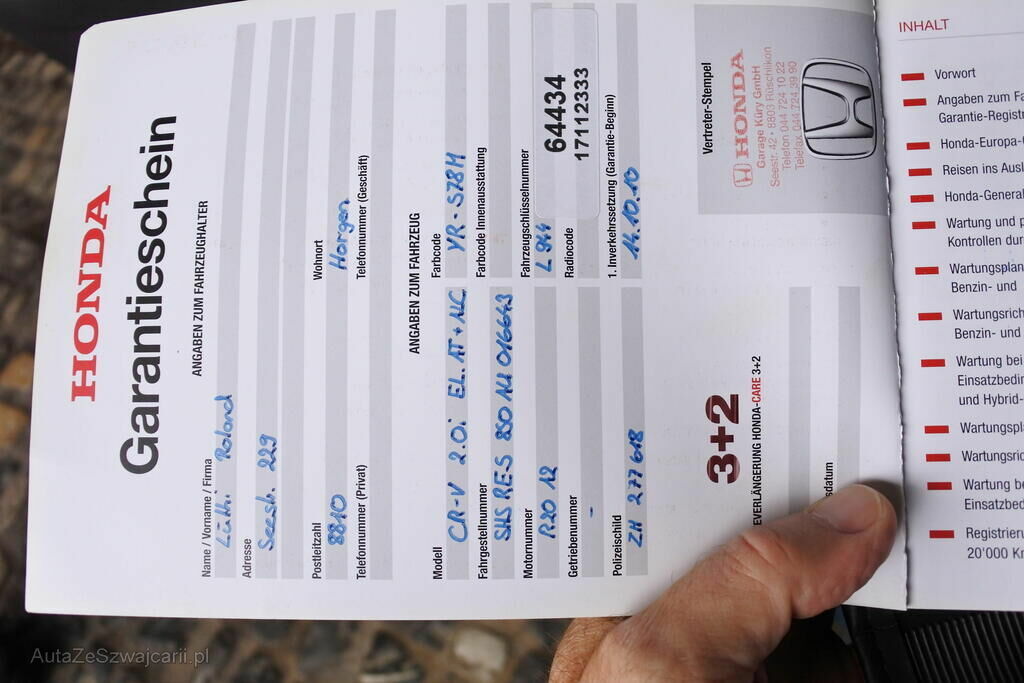 HONDA
Garantieschein
ANGABEN ZUM FAHRZEUGHALTER
Name / Vorname / Firma
Lüthi Roland
Adresse
Seestr. 229
Postleitzahl Wohnort
8810 Horgen
Telefonnummer (Privat) Telefonnummer (Geschäft)
ANGABEN ZUM FAHRZEUG
Modell Farbcode
CR-V 2.0i EL. AT + NC YR-578M
Fahrgestellnummer Farbcode Innenausstattung
SHS RE5 850 AU 016643
Motornummer Fahrzeugschlüsselnummer
R20 A2 L944
Getriebenummer Radiocode
-
64434
17112333
Polizeischild 1. Inverkehrssetzung (Garantie-Beginn)
ZH 277 618 14.10.10
3+2
EVERLÄNGERUNG HONDA-CARE 3+2
sdatum
Vertreter-Stempel
HONDA
Garage Küry GmbH
Seestr. 42 • 8803 Rüschlikon
Telefon 044 724 10 22
Telefax 044 724 39 90
INHALT
Vorwort
Angaben zum Fa
Garantie-Registr
Honda-Europa-
Reisen ins Ausl
Honda-General
Wartung und p
Kontrollen dur
Wartungsplan
Benzin- und
Wartungsrich
Benzin- und
Wartung bei
Einsatzbedin
und Hybrid-
Wartungspl
Wartungsric
Wartung be
Einsatzbed
Registrieru
20'000 Km
AutaZeSzwajcarii.pl